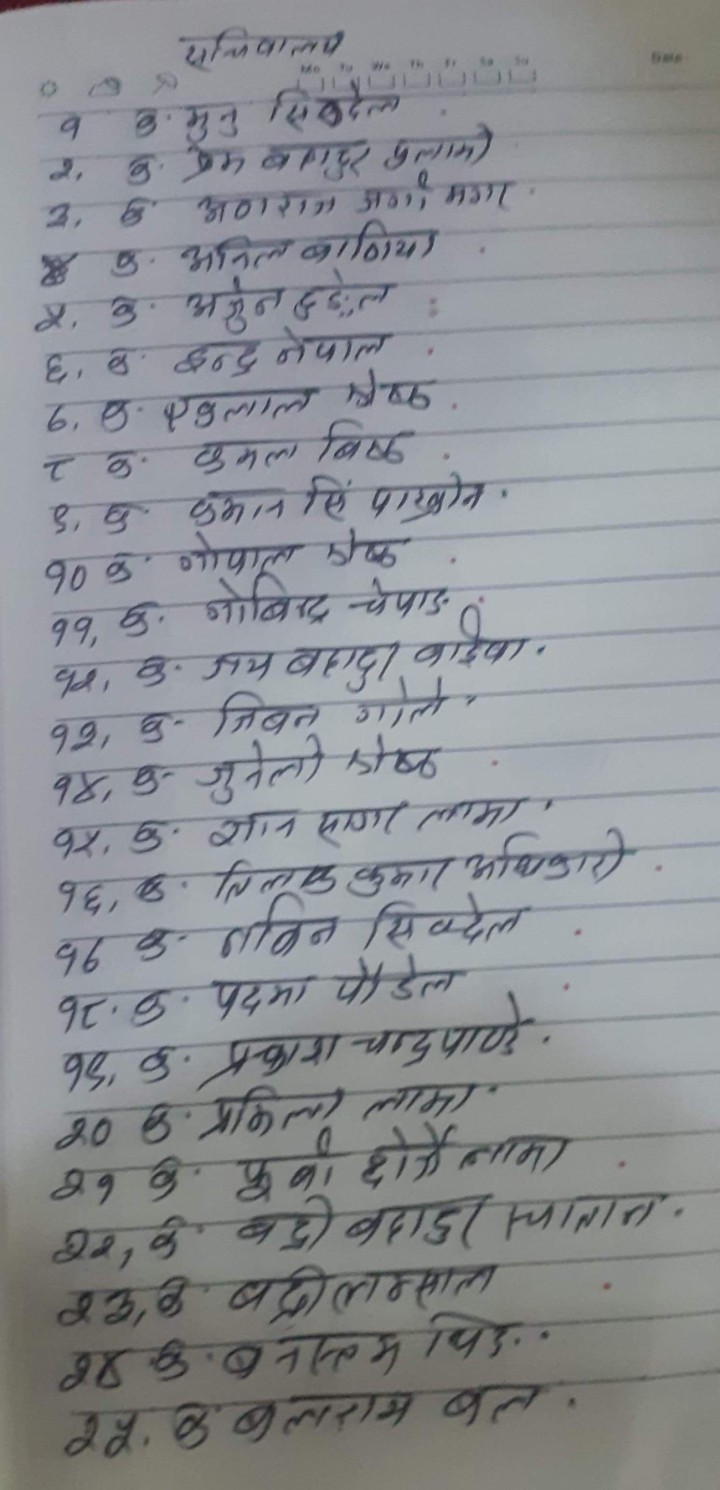 सचिवालय
Mo Tu We Th Fr Sa Su
Date
१ क. मुनु सिग्देल
२. क. प्रेम बहादुर पुलामी
३. क. मगर
४ क. अनिल बानिया
५. क. अर्जुन ढुङ्गेल
६. क. इन्द्र नेपाल
७. क. एकलाल श्रेष्ठ
८ क. कमल बिष्ट
९. क. कुमान सिं पाख्रीन
१० क. गोपाल श्रेष्ठ
११, क. गोबिन्द्र चेपाङ
१२, क. जय बहादुर वाईवा.
१३, क- जिबन गोले
१४, क- जुनेली श्रेष्ठ
१५. क. ज्ञान सागर लामा
१६, क. तिलक कुमार अधिकारी
१७ क- नबिन सिग्देल
१८. क. पदमा पौडेल
१९, क. प्रकाश चन्द्र पाण्डे.
२० क. प्रमिला लामा
२१ क. फूर्वा दोर्जे लामा
२२, क. बद्री बहादुर स्याङतान.
२३, क. बद्री लम्साल
२४ क.
२५. क बलराम बल.